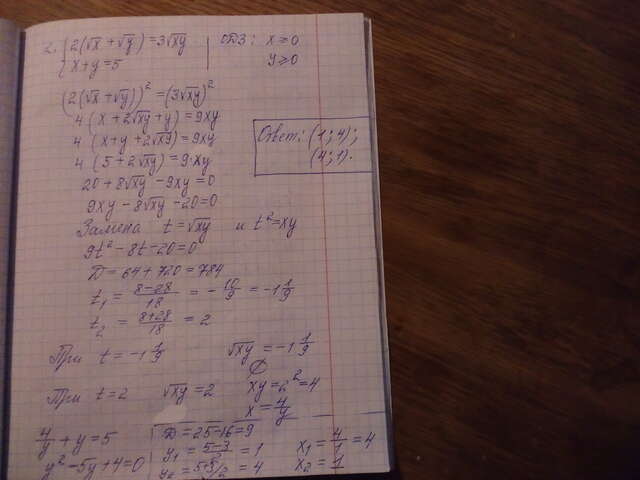 2. { 2(√x + √y) = 3√xy
{ x + y = 5
ОДЗ: x ≥ 0
y ≥ 0
(2(√x + √y))² = (3√xy)²
4(x + 2√xy + y) = 9xy
4(x + y + 2√xy) = 9xy
4(5 + 2√xy) = 9·xy
20 + 8√xy - 9xy = 0
9xy - 8√xy - 20 = 0
Замена t = √xy и t² = xy
9t² - 8t - 20 = 0
D = 64 + 720 = 784
t₁ = (8-28)/18 = - 10/9 = -1 1/9
t₂ = (8+28)/18 = 2
При t = -1 1/9 √xy = -1 1/9
∅
При t = 2 √xy = 2 xy = 2² = 4
x = 4/y
4/y + y = 5
y² - 5y + 4 = 0
D = 25 - 16 = 9
y₁ = (5-3)/2 = 1
y₂ = (5+3)/2 = 4
x₁ = 4/1 = 4
x₂ = 1
Ответ: (1; 4);
(4; 1).